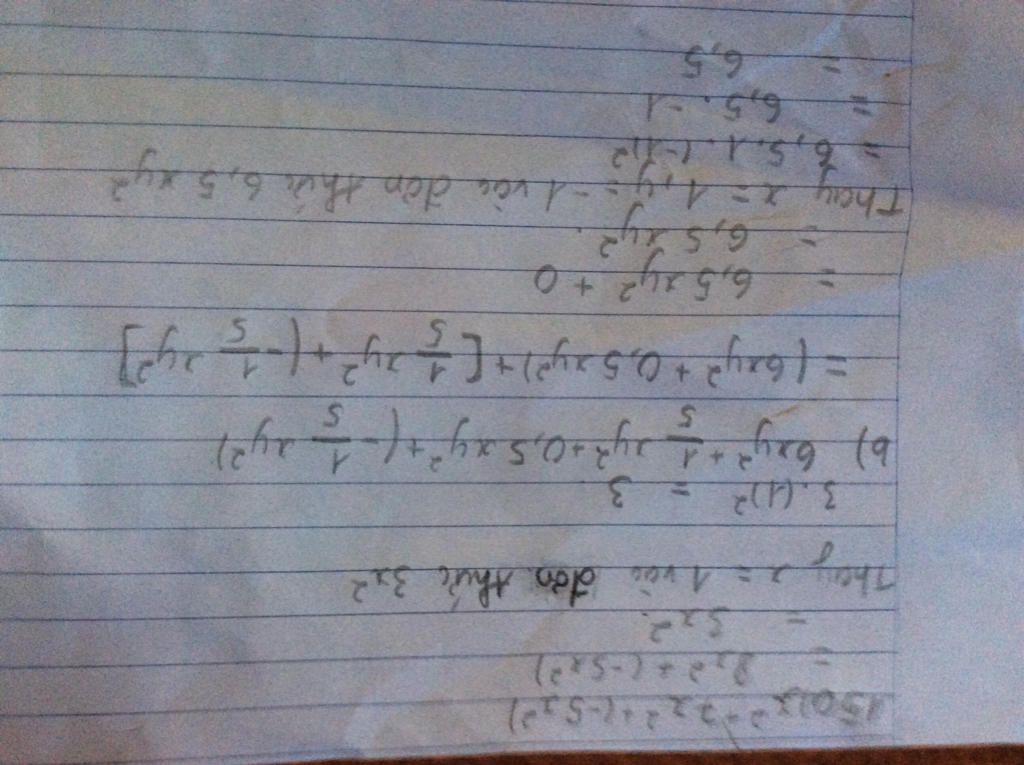 15 a) x² + 7x² + (-5x²)
= 8x² + (-5x²)
= 3x².
Thay x = 1 vào đơn thức 3x²
3.(1)² = 3.
b) 6xy² + 1/5 xy² + 0,5xy² + (-1/5 xy²)
= (6xy² + 0,5xy²) + [1/5 xy² + (-1/5 xy²]
= 6,5xy² + 0
= 6,5xy².
Thay x = 1, y = -1 vào đơn thức 6,5xy²
= 6,5.1.(-1)²
= 6,5.-1
= 6,5